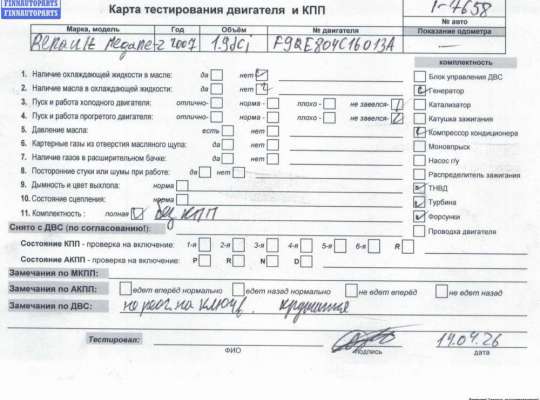 FINNAUTOPARTS
Карта тестирования двигателя и КПП
1-7658
№ авто
Марка, модель Год Объём № двигателя Показание одометра
Renault Megane-2 2007 1.9dCi F9QE804C16013A —
комплектность
1. Наличие охлаждающей жидкости в масле: да нет
2. Наличие масла в охлаждающей жидкости: да нет
3. Пуск и работа холодного двигателя: отлично- норма - плохо - не завелся-
4. Пуск и работа прогретого двигателя: отлично- норма - плохо - не завелся-
5. Давление масла: есть нет
6. Картерные газы из отверстия масляного щупа: да нет
7. Наличие газов в расширительном бачке: да нет
8. Посторонние стуки или шумы при работе: да нет
9. Дымность и цвет выхлопа: норма
10. Состояние сцепления: норма
11. Комплектность : полная без КПП
Блок управления ДВС
Генератор
Катализатор
Катушка зажигания
Компрессор кондиционера
Моновпрыск
Насос г/у
Распределитель зажигания
ТНВД
Турбина
Форсунки
Проводка двигателя
Снято с ДВС (по согласованию!):
Состояние КПП - проверка на включение: 1-я 2-я 3-я 4-я 5-я 6-я R
Состояние АКПП - проверка на включение: P R N D
Замечания по МКПП:
Замечания по АКПП: едет вперёд нормально едет назад нормально не едет вперёд не едет назад
Замечания по ДВС: не реаг. на ключ, крутится
Тестировал: 14.04.26
ФИО подпись дата